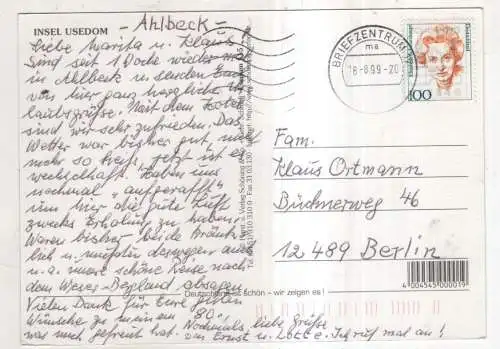 INSEL USEDOM
- Ahlbeck -
Liebe Marita u. Klaus!
Sind seit 1 Woche wieder mal
in Ahlbeck u. senden Euch
von hier ganz herzliche Ur-
laubsgrüße. Mit dem Hotel
sind wir sehr zufrieden. Das
Wetter war bisher gut, nicht
mehr so heiß, jetzt ist es
wechselhaft. Haben uns
nochmal "aufgerafft"
um hier die gute Luft
zwecks Erholung zu haben.
Waren bisher beide kränk-
lich u. mußten deswegen auch
u. a. unsere schöne Reise nach
dem Weser-Bergland absagen.
Vielen Dank für Eure guten
Wünsche zu meinem "80."
was mich gefreut hat. Nochmals liebe Grüße
von Ernst u. Lotte. Ich ruf mal an!
BRIEFZENTRUM
ma
-8.99-20
Deutschland
100
Fam.
Klaus Ortmann
Büchnerweg 46
12 489 Berlin
Deutschland ist schön – wir zeigen es!
4 004545 000019